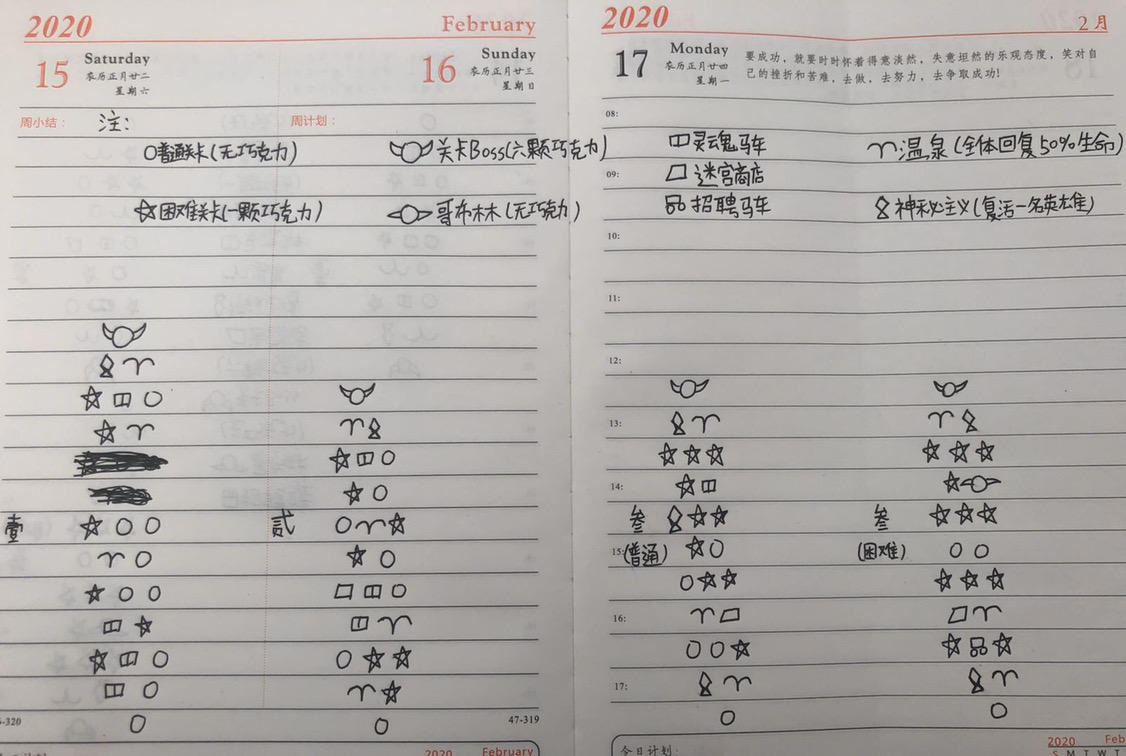 2020 February
15 Saturday
农历正月廿二
星期六
16 Sunday
农历正月廿三
星期日
周小结：
注：
周计划：
普通关卡(无巧克力)
关卡Boss(六颗巧克力)
困难关卡(一颗巧克力)
哥布林木(无巧克力)
壹
贰
-320
47-319
2020 February
2020 2月
17 Monday
农历正月廿四
星期一
要成功，就要时时怀着得意淡然，失意坦然的乐观态度，笑对自
己的挫折和苦难，去做，去努力，去争取成功!
08:
灵魂马车
温泉(全体回复50%生命)
09:
迷宫商店
招聘马车
神秘主义(复活一名英雄)
10:
11:
12:
13:
14:
叁
叁
15:
(普通)
(困难)
16:
17:
今日计划:
2020 Feb
S M T W T